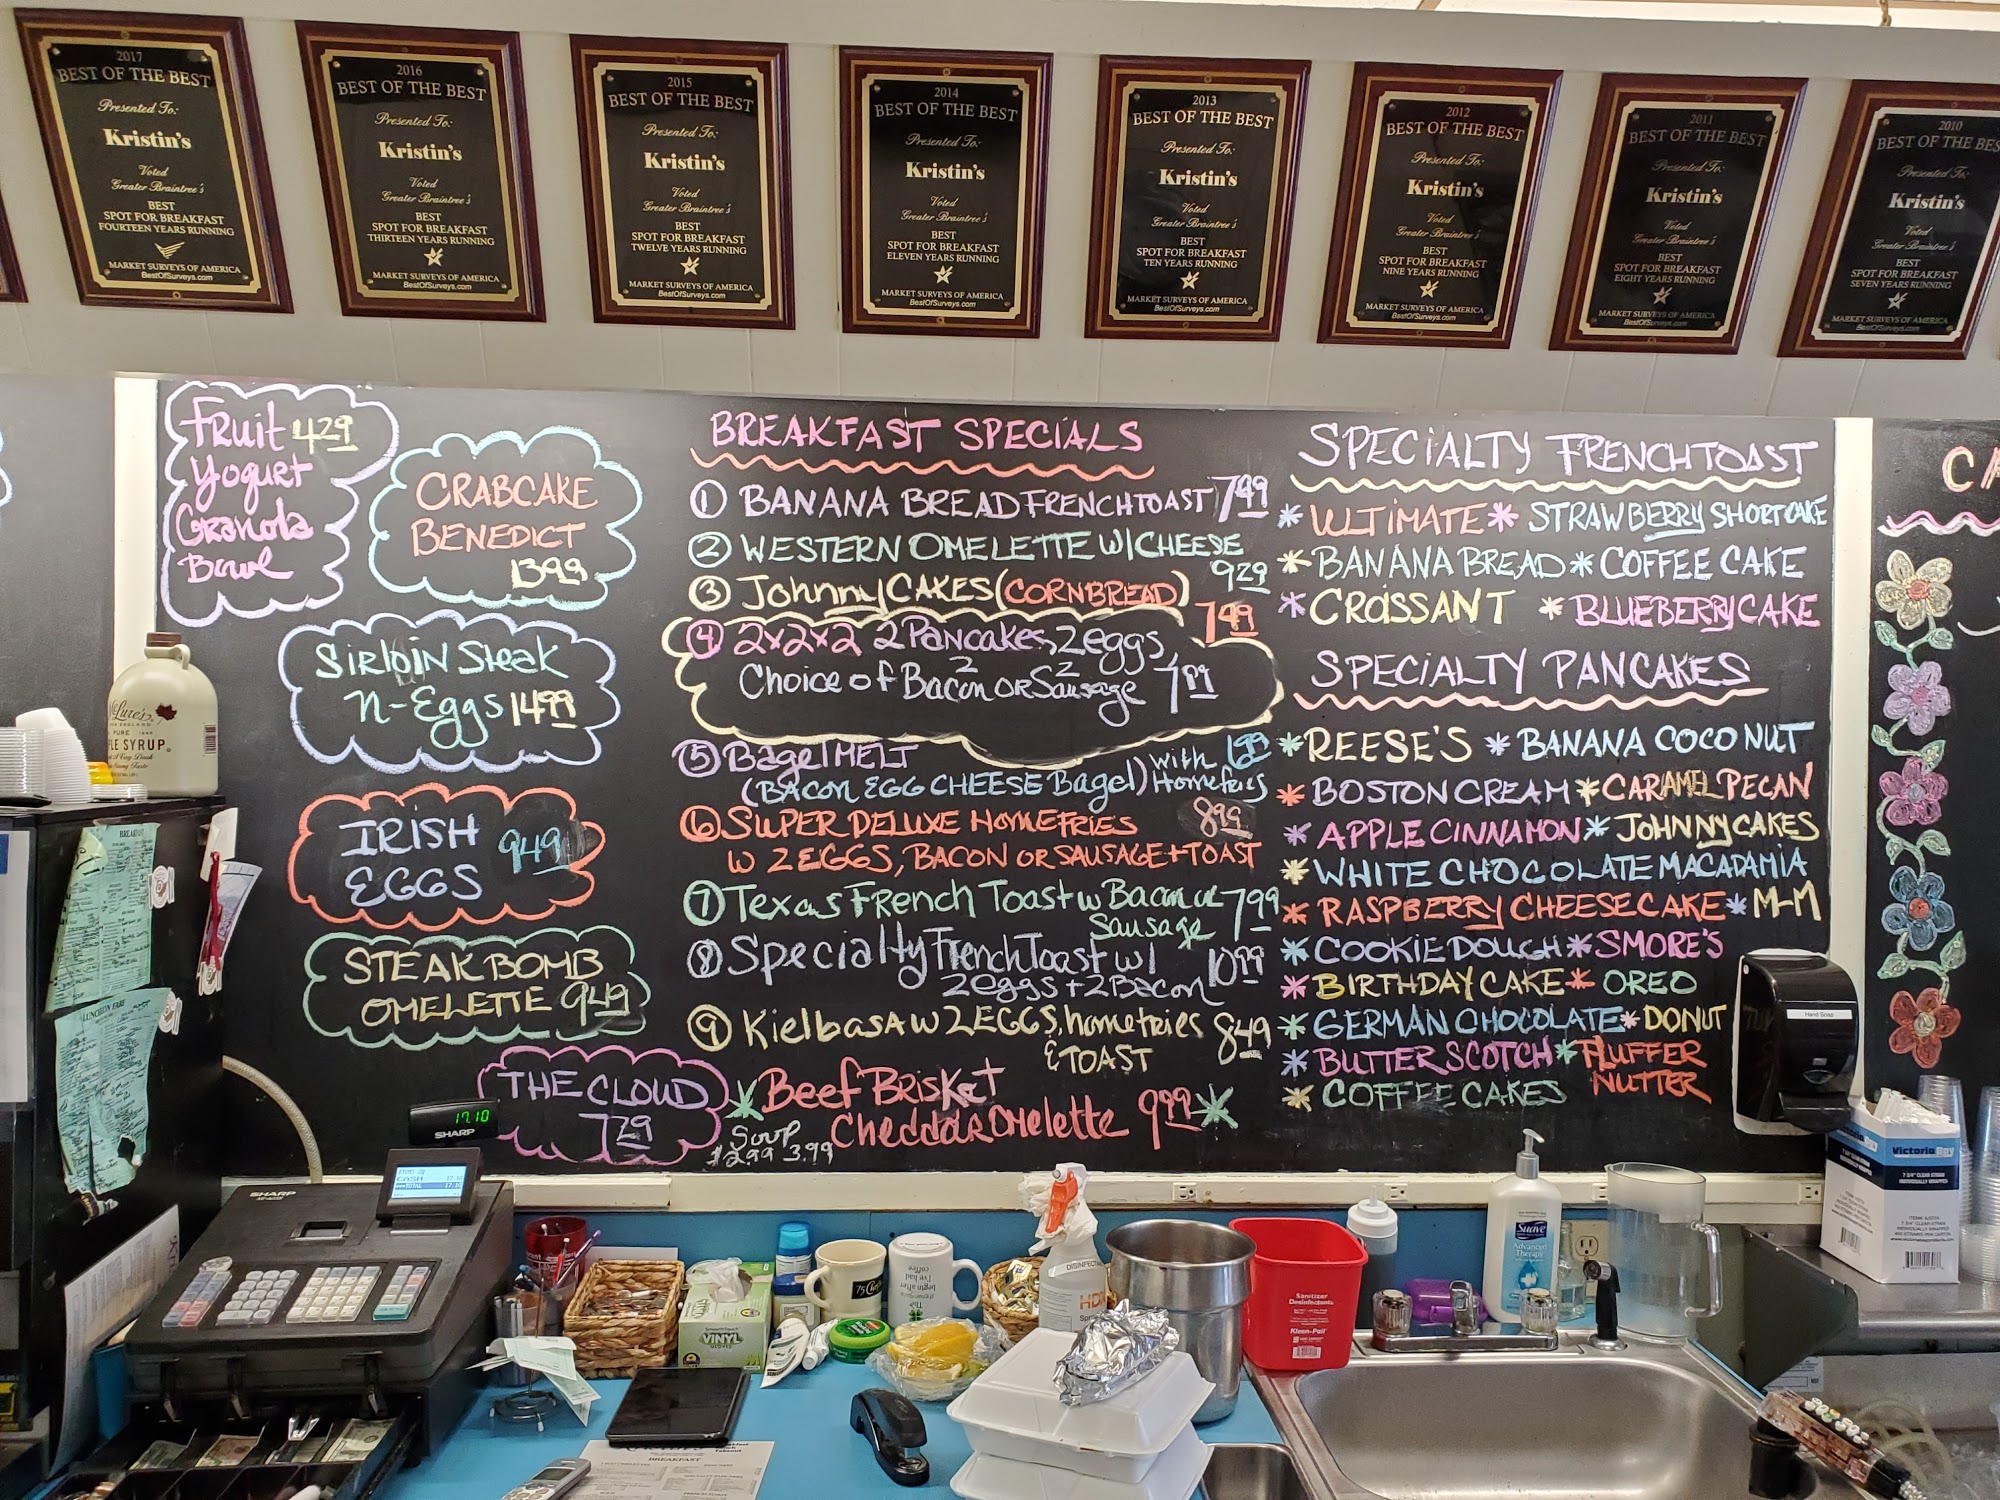 2017
BEST OF THE BEST
Presented To:
Kristin's
Voted
Greater Braintree's
BEST
SPOT FOR BREAKFAST
FOURTEEN YEARS RUNNING
MARKET SURVEYS OF AMERICA
BestOfSurveys.com
2016
BEST OF THE BEST
Presented To:
Kristin's
Voted
Greater Braintree's
BEST
SPOT FOR BREAKFAST
THIRTEEN YEARS RUNNING
MARKET SURVEYS OF AMERICA
BestOfSurveys.com
2015
BEST OF THE BEST
Presented To:
Kristin's
Voted
Greater Braintree's
BEST
SPOT FOR BREAKFAST
TWELVE YEARS RUNNING
MARKET SURVEYS OF AMERICA
BestOfSurveys.com
2014
BEST OF THE BEST
Presented To:
Kristin's
Voted
Greater Braintree's
BEST
SPOT FOR BREAKFAST
ELEVEN YEARS RUNNING
MARKET SURVEYS OF AMERICA
BestOfSurveys.com
2013
BEST OF THE BEST
Presented To:
Kristin's
Voted
Greater Braintree's
BEST
SPOT FOR BREAKFAST
TEN YEARS RUNNING
MARKET SURVEYS OF AMERICA
BestOfSurveys.com
2012
BEST OF THE BEST
Presented To:
Kristin's
Voted
Greater Braintree's
BEST
SPOT FOR BREAKFAST
NINE YEARS RUNNING
MARKET SURVEYS OF AMERICA
BestOfSurveys.com
2011
BEST OF THE BEST
Presented To:
Kristin's
Voted
Greater Braintree's
BEST
SPOT FOR BREAKFAST
EIGHT YEARS RUNNING
MARKET SURVEYS OF AMERICA
BestOfSurveys.com
2010
BEST OF THE BES
Presented To:
Kristin's
Voted
Greater Braintree's
BEST
SPOT FOR BREAKFAST
SEVEN YEARS RUNNING
MARKET SURVEYS OF AMERICA
BestOfSurveys.com
Fruit 4.29
Yogurt
Granola
Bowl
CRABCAKE
BENEDICT
13.99
Sirloin Steak
n-Eggs 14.99
IRISH
EGGS 9.49
STEAK BOMB
OMELETTE 9.49
THE CLOUD
7.29
Soup
$2.99 3.99
BREAKFAST SPECIALS
1 BANANA BREAD FRENCH TOAST 7.49
2 WESTERN OMELETTE W/CHEESE
9.29
3 Johnny CAKES (CORNBREAD)
7.49
4 2x2x2 2 Pancakes, 2 eggs
Choice of 2 Bacon OR 2 Sausage 7.99
5 Bagel MELT with 6.99
(BACon EGG CHEESE Bagel) Homefries
6 SUPER DELUXE HOMEFRIES 8.99
W 2 EGGS, BACON OR SAUSAGE + TOAST
7 Texas French Toast w Bacon or 7.99
Sausage
8 Specialty French Toast w/ 10.99
2 eggs + 2 Bacon
9 KielbasA w 2 EGGS, homefries 8.49
& TOAST
Beef BRisket
Cheddar Omelette 9.99
SPECIALTY FRENCH TOAST
* ULTIMATE * STRAWBERRY SHORTCAKE
* BANANA BREAD * COFFEE CAKE
* CROISSANT * BLUEBERRY CAKE
SPECIALTY PANCAKES
* REESE'S * BANANA COCONUT
* BOSTON CREAM * CARAMEL PECAN
* APPLE CINNAMON * JOHNNYCAKES
* WHITE CHOCOLATE MACADAMIA
* RASPBERRY CHEESECAKE * M-M
* COOKIE DOUGH * SMORE'S
* BIRTHDAY CAKE * OREO
* GERMAN CHOCOLATE * DONUT
* BUTTERSCOTCH * FLUFFER
NUTTER
* COFFEE CAKES
CA
PURE
SYRUP
BREAKFAST
LUNCHEON FARE
17.10
SHARP
SHARP
CASH 17.10
TOTAL 17.10
VINYL
75
DISINFECTANT
Sanitizer
Disinfectants
Kleen-Pail
Suave
Advanced
Therapy
Hand Soap
Victoria Bay
7 3/4" CLEAR STRAW
INDIVIDUALLY WRAPPED
BREAKFAST